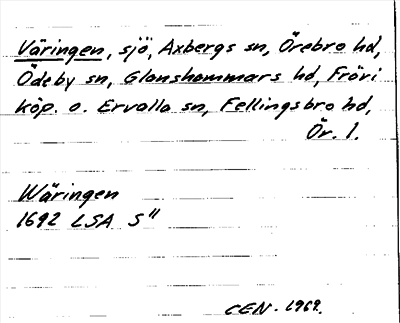 Väringen, sjö, Axbergs sn, Örebro hd,
Ödeby sn, Glanshammars hd, Frövi
köp. o. Ervalla sn, Fellingsbro hd,
Ör. l.
Wäringen
1692 LSA S"
CEN. 1969.